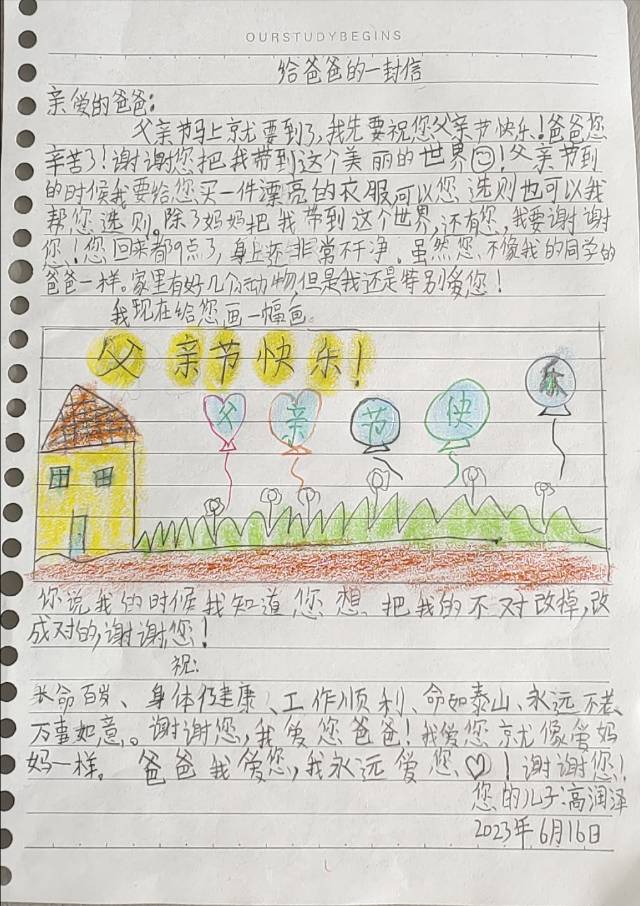 OURSTUDYBEGINS
给爸爸的一封信
亲爱的爸爸:
父亲节马上就要到了,我先要祝您父亲节快乐!爸爸您
辛苦了!谢谢您把我带到这个美丽的世界!父亲节到
的时候我要给您买一件漂亮的衣服,可以您选则也可以我
帮您选则。除了妈妈把我带到这个世界,还有您,我要谢谢
您!您回来都9点了,身上还非常不干净。虽然您不像我的同学的
爸爸一样。家里有好几个动物但是我还是特别爱您!
我现在给您画一幅画。
父亲节快乐!
父 亲 节 快 乐
你说我的时候我知道您想把我的不对改掉,改
成对的,谢谢您!
祝:
长命百岁、身体健康、工作顺利、命如泰山、永远不老、
万事如意。谢谢您,我爱您爸爸!我爱您就像爱妈
妈一样。爸爸我爱您,我永远爱您♡!谢谢您!
您的儿子:高润泽
2023年6月16日